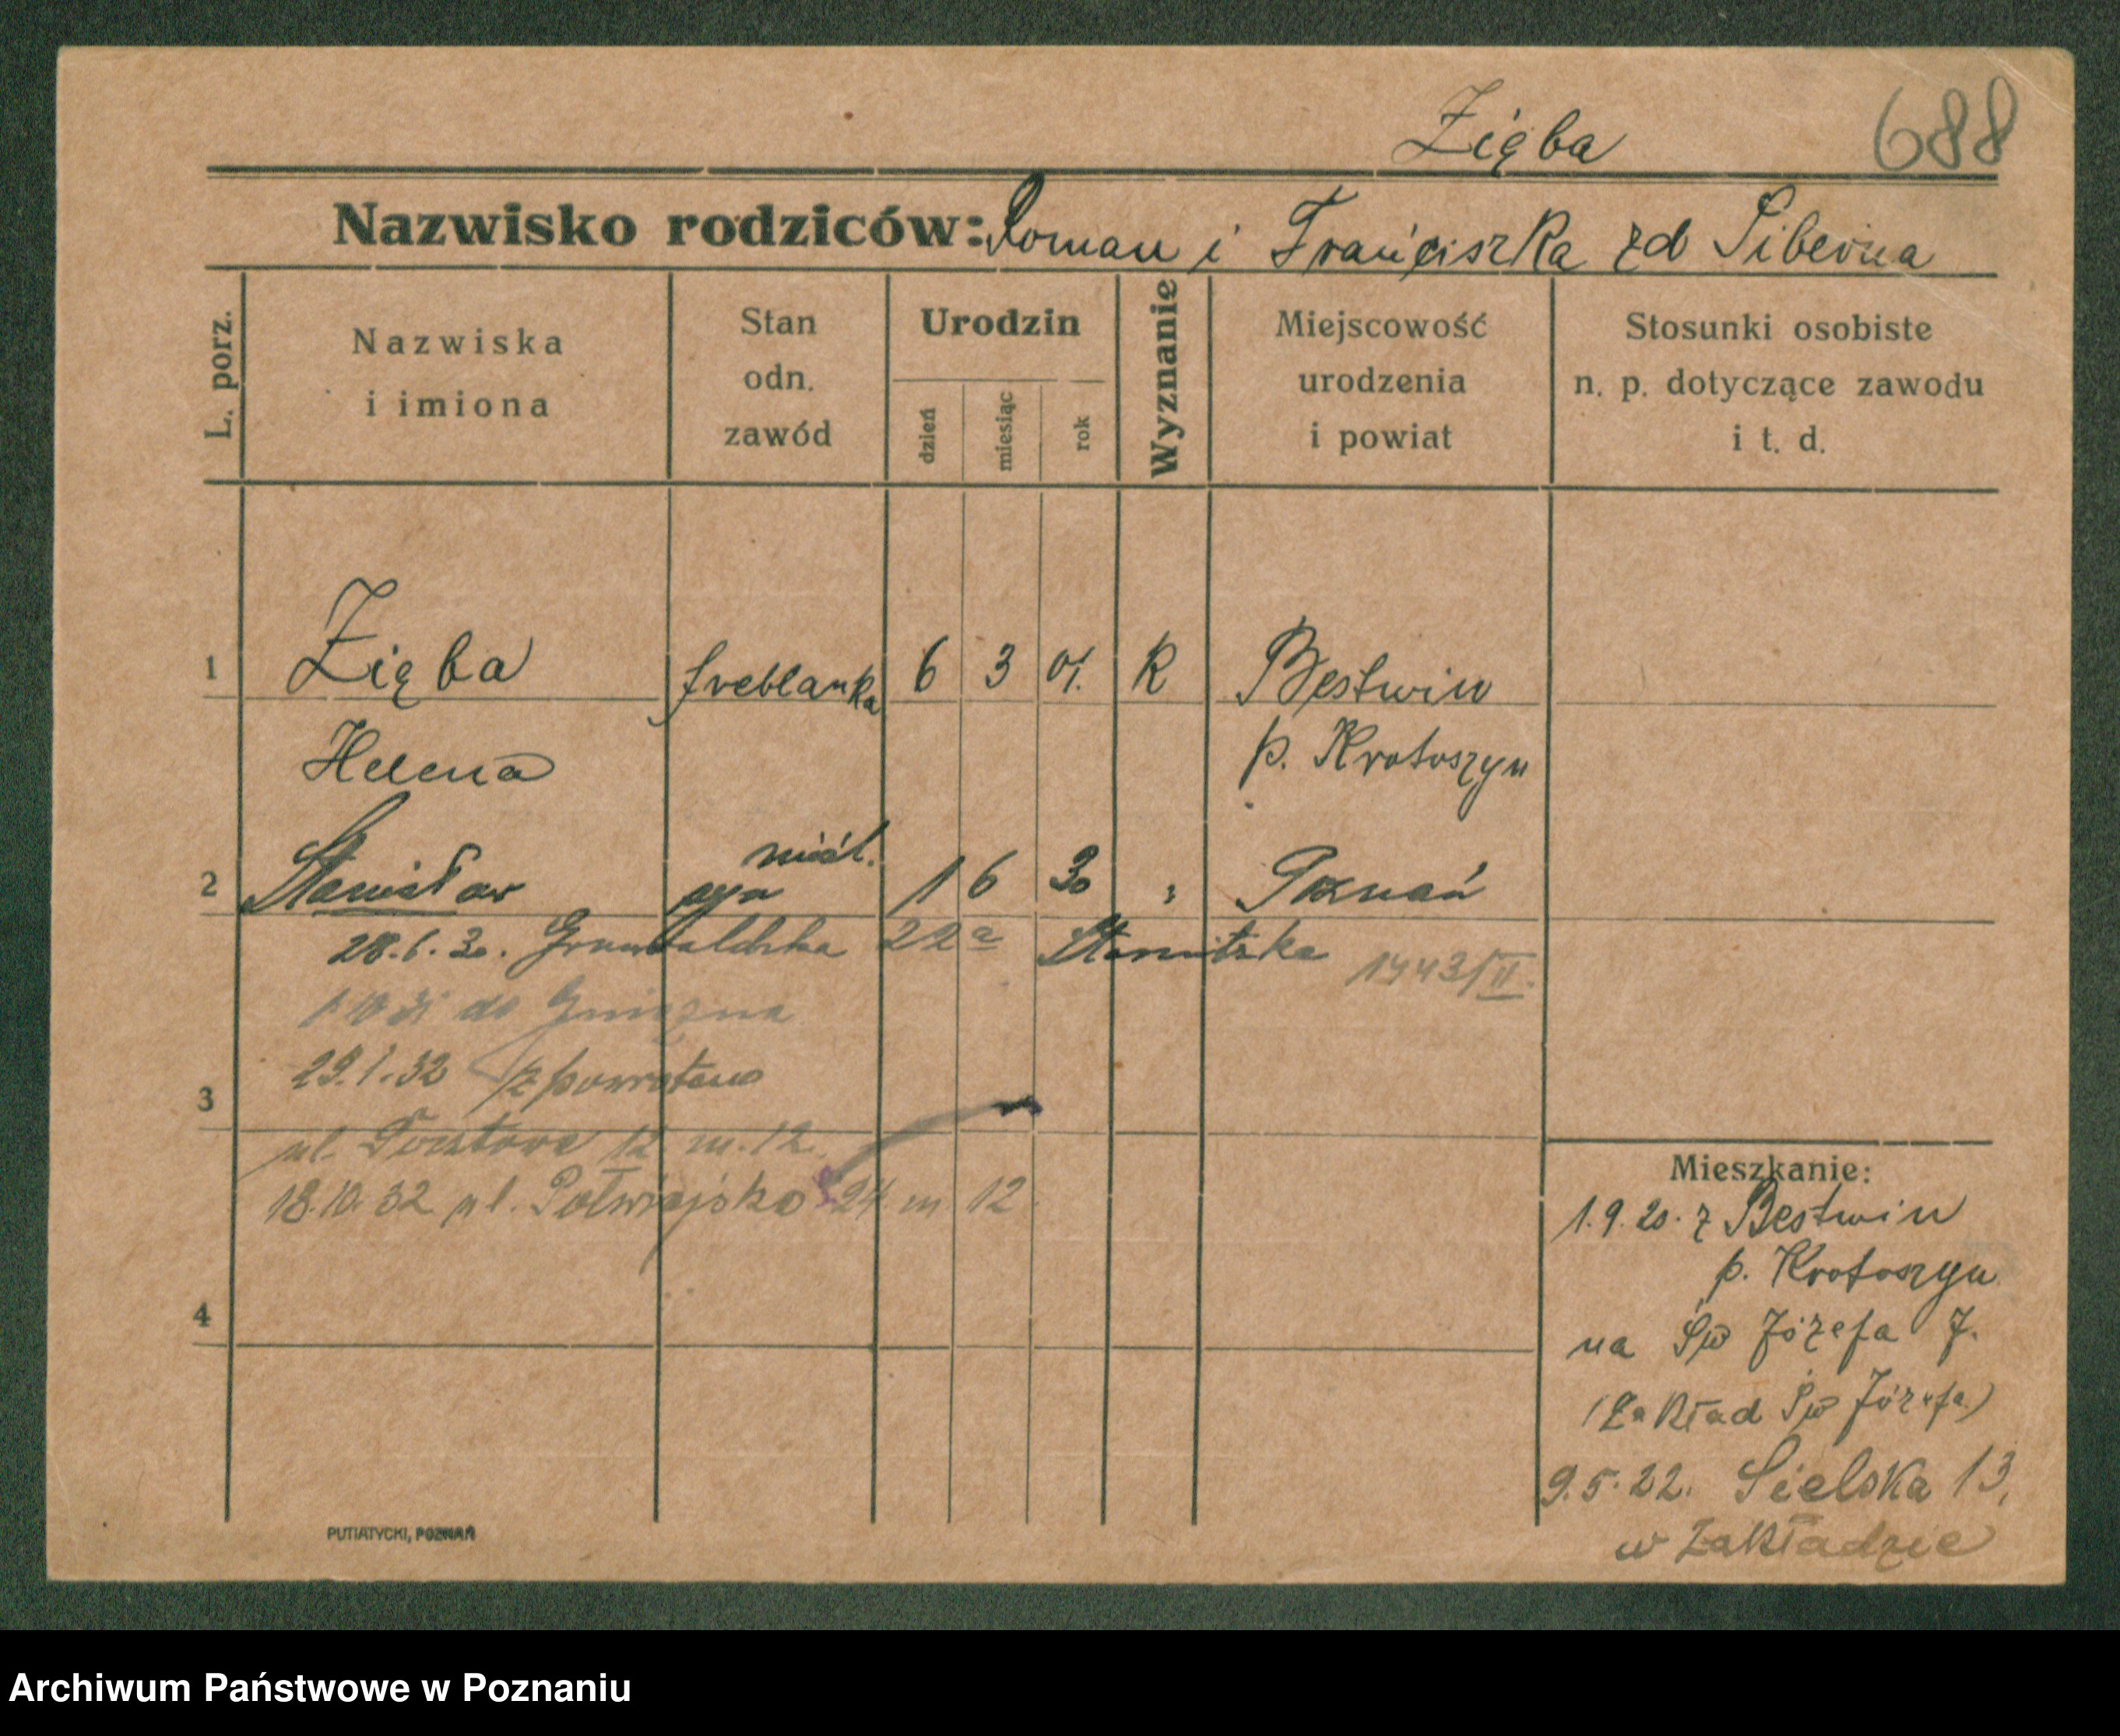 688
Zięba
Nazwisko rodziców: Roman i Franciszka zd Siberna
L. porz.
Nazwiska i imiona
Stan odn. zawód
Urodzin
dzień
miesiąc
rok
Wyznanie
Miejscowość urodzenia i powiat
Stosunki osobiste n. p. dotyczące zawodu i t. d.
1 Zięba freblanka 6 3 01. R Bestwin
Helena p. Krotoszyn
nieśl.
2 Stanisław syn 1 6 30 " Poznań
28.6.30. Grunwaldzka 22a
1743/II.
1 10 31 do Gniezna
29.1.32 z powrotem
3
ul. Pocztowa 12 m. 12.
18.10.32 ul. Półwiejska 24 m 12
4
Mieszkanie:
1.9.20. z Bestwin
p. Krotoszyn
na Św Józefa 7.
(Zakład Św Józefa)
9.5.22. Sielska 13,
w Zakładzie
PUTIATYCKI, POZNAŃ
Archiwum Państwowe w Poznaniu